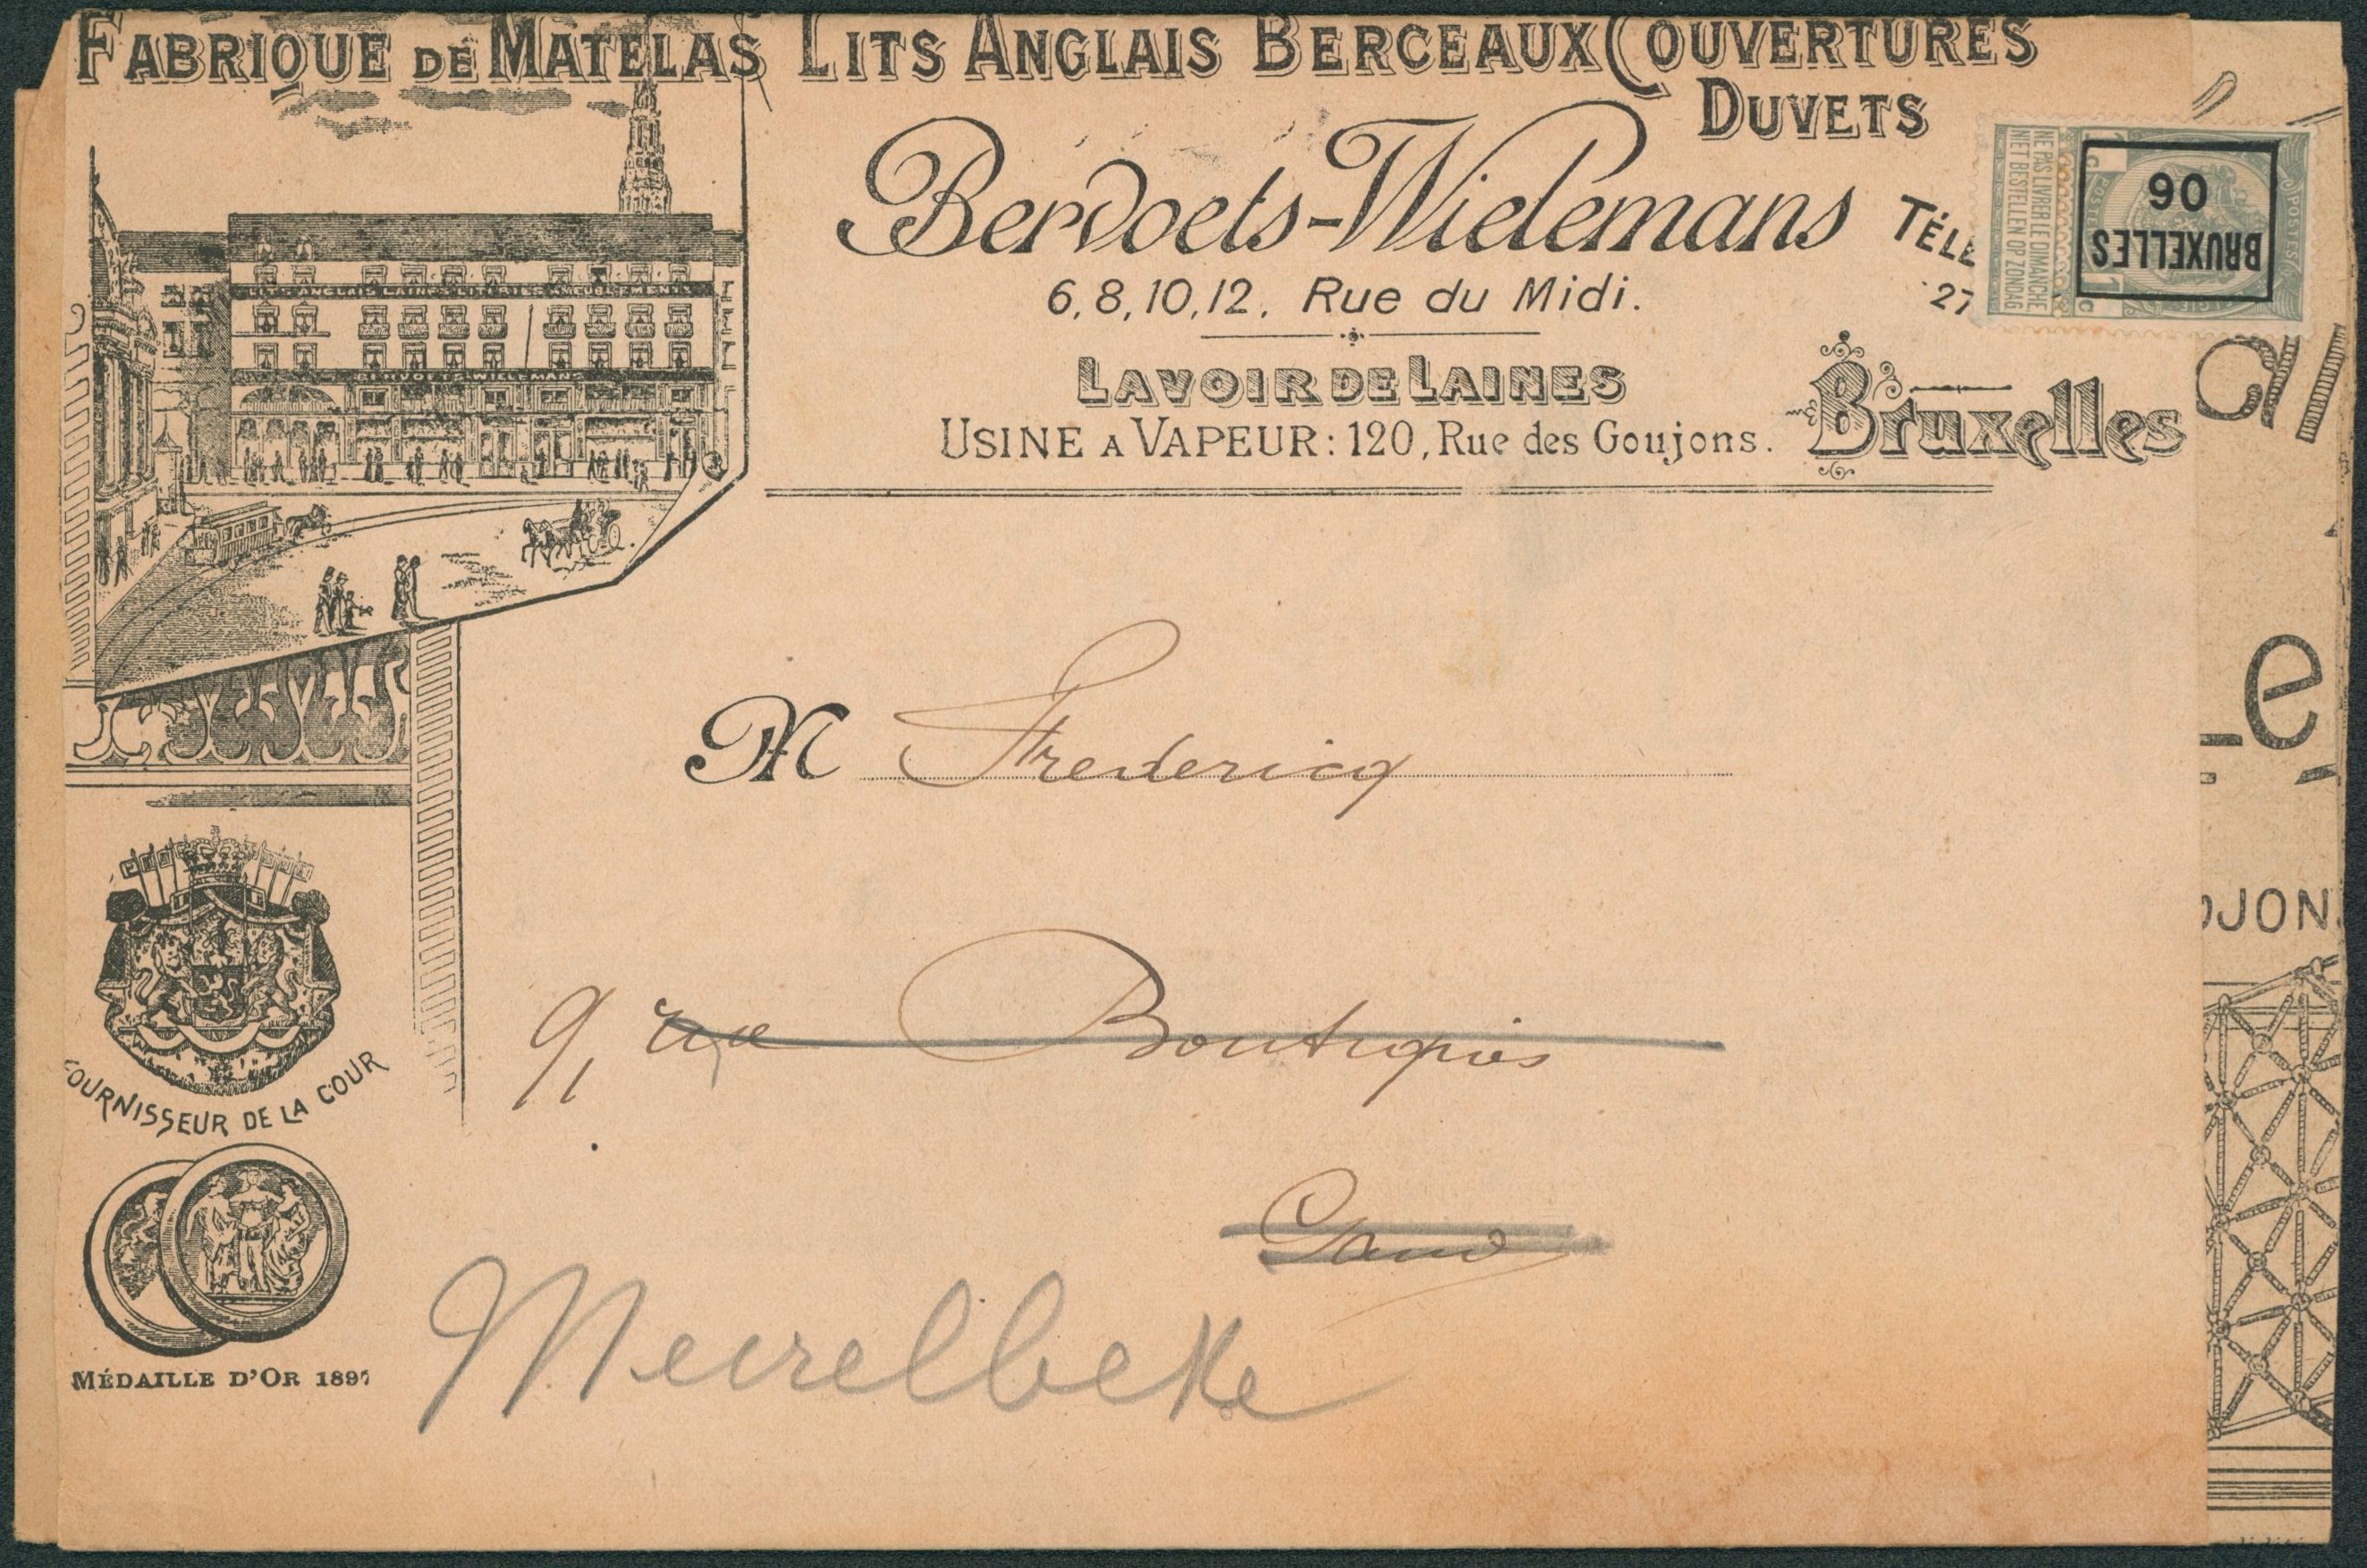 FABRIQUE DE MATELAS LITS ANGLAIS BERCEAUX COUVERTURES
DUVETS
Bervoets-Wielemans
TÉLÉ
27
6, 8, 10, 12, Rue du Midi.
LAVOIR DE LAINES
USINE A VAPEUR: 120, Rue des Goujons.
Bruxelles
1 c
POSTES
NE PAS LIVRER LE DIMANCHE
NIET BESTELLEN OP ZONDAG
BRUXELLES
06
LITS ANGLAIS LAINES LITERIES AMEUBLEMENTS
BERVOETS WIELEMANS
M Fredericq
9, rue Boutiques
Gand
Meirelbeke
FOURNISSEUR DE LA COUR
MÉDAILLE D'OR 1897
Le
OJON